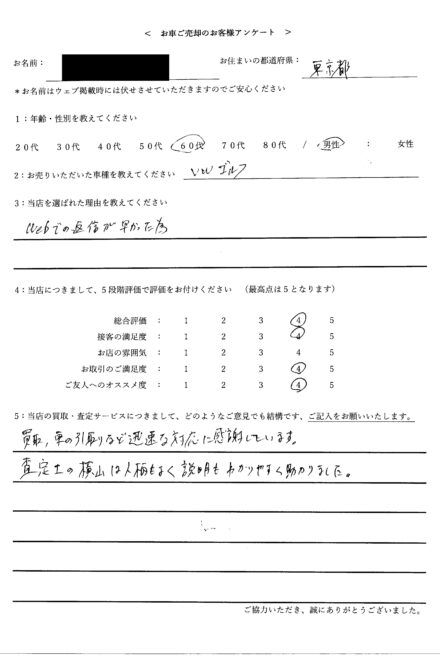 < お車ご売却のお客様アンケート >
お名前： お住まいの都道府県： 東京都
*お名前はウェブ掲載時には伏せさせていただきますのでご安心ください
1：年齢・性別を教えてください
20代 30代 40代 50代 60代 70代 80代 / 男性 ： 女性
2：お売りいただいた車種を教えてください VW ゴルフ
3：当店を選ばれた理由を教えてください
Webでの返信が早かった為
4：当店につきまして、5段階評価で評価をお付けください （最高点は5となります）
総合評価 ： 1 2 3 4 5
接客の満足度 ： 1 2 3 4 5
お店の雰囲気 ： 1 2 3 4 5
お取引のご満足度 ： 1 2 3 4 5
ご友人へのオススメ度 ： 1 2 3 4 5
5：当店の買取・査定サービスにつきまして、どのようなご意見でも結構です、ご記入をお願いいたします。
買取，車の引取りなど迅速な対応に感謝しています。
査定士の横山は人柄もよく説明もわかりやすく助かりました。
ご協力いただき、誠にありがとうございました。